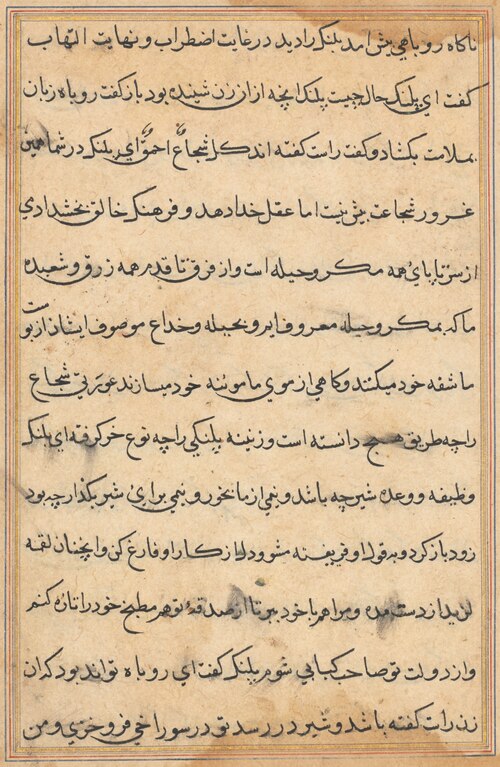 ناکاه روباهی پیش امد پلنک را دید در غایت اضطراب و نهایت التهاب
کفت ای پلنک حال چیست پلنک انچه از ان زن شنیده بود باز کفت روباه زبان
بملامت بکشاد و کفت راست کفته اند کل شجاع احمق ای پلنک در شما همین
غرور شجاعت بیش نیست اما عقل خدا دهد و فرهنک خالق بخشد ادمی
از سر تا پای همه مکر و حیله است و از فرق تا قدم همه زرق و شعبده
ما که بمکر و حیله معروفایم و بحیله و خداع موصوف ایشان از پوست
ما شقه خود میکنند و کاهی از موی ما موئینه خود میسازند عورتی شجاع
را چه طریق هیچ دانسته است و زنینه پلنکی را چه نوع خر کرفته ای پلنک
وظیفه و وعده شیر چه باشد و نیمی از ما بخور و نیمی برای شیر بکذار چه بود
زود باز کرد و بقول او فریفته مشو و دل از کار او فارغ کن و اینچنان لقمه
لذیذ از دست مده و مرا هم با خود ببر تا از صدقه تو هم مطبخ خود را تازه کنم
و از دولت تو صاحب کبابی شوم پلنک کفت ای روباه تواند بود که ان
زن راست کفته باشد و شیر در رسد تو در سوراخی فرو خزی و من